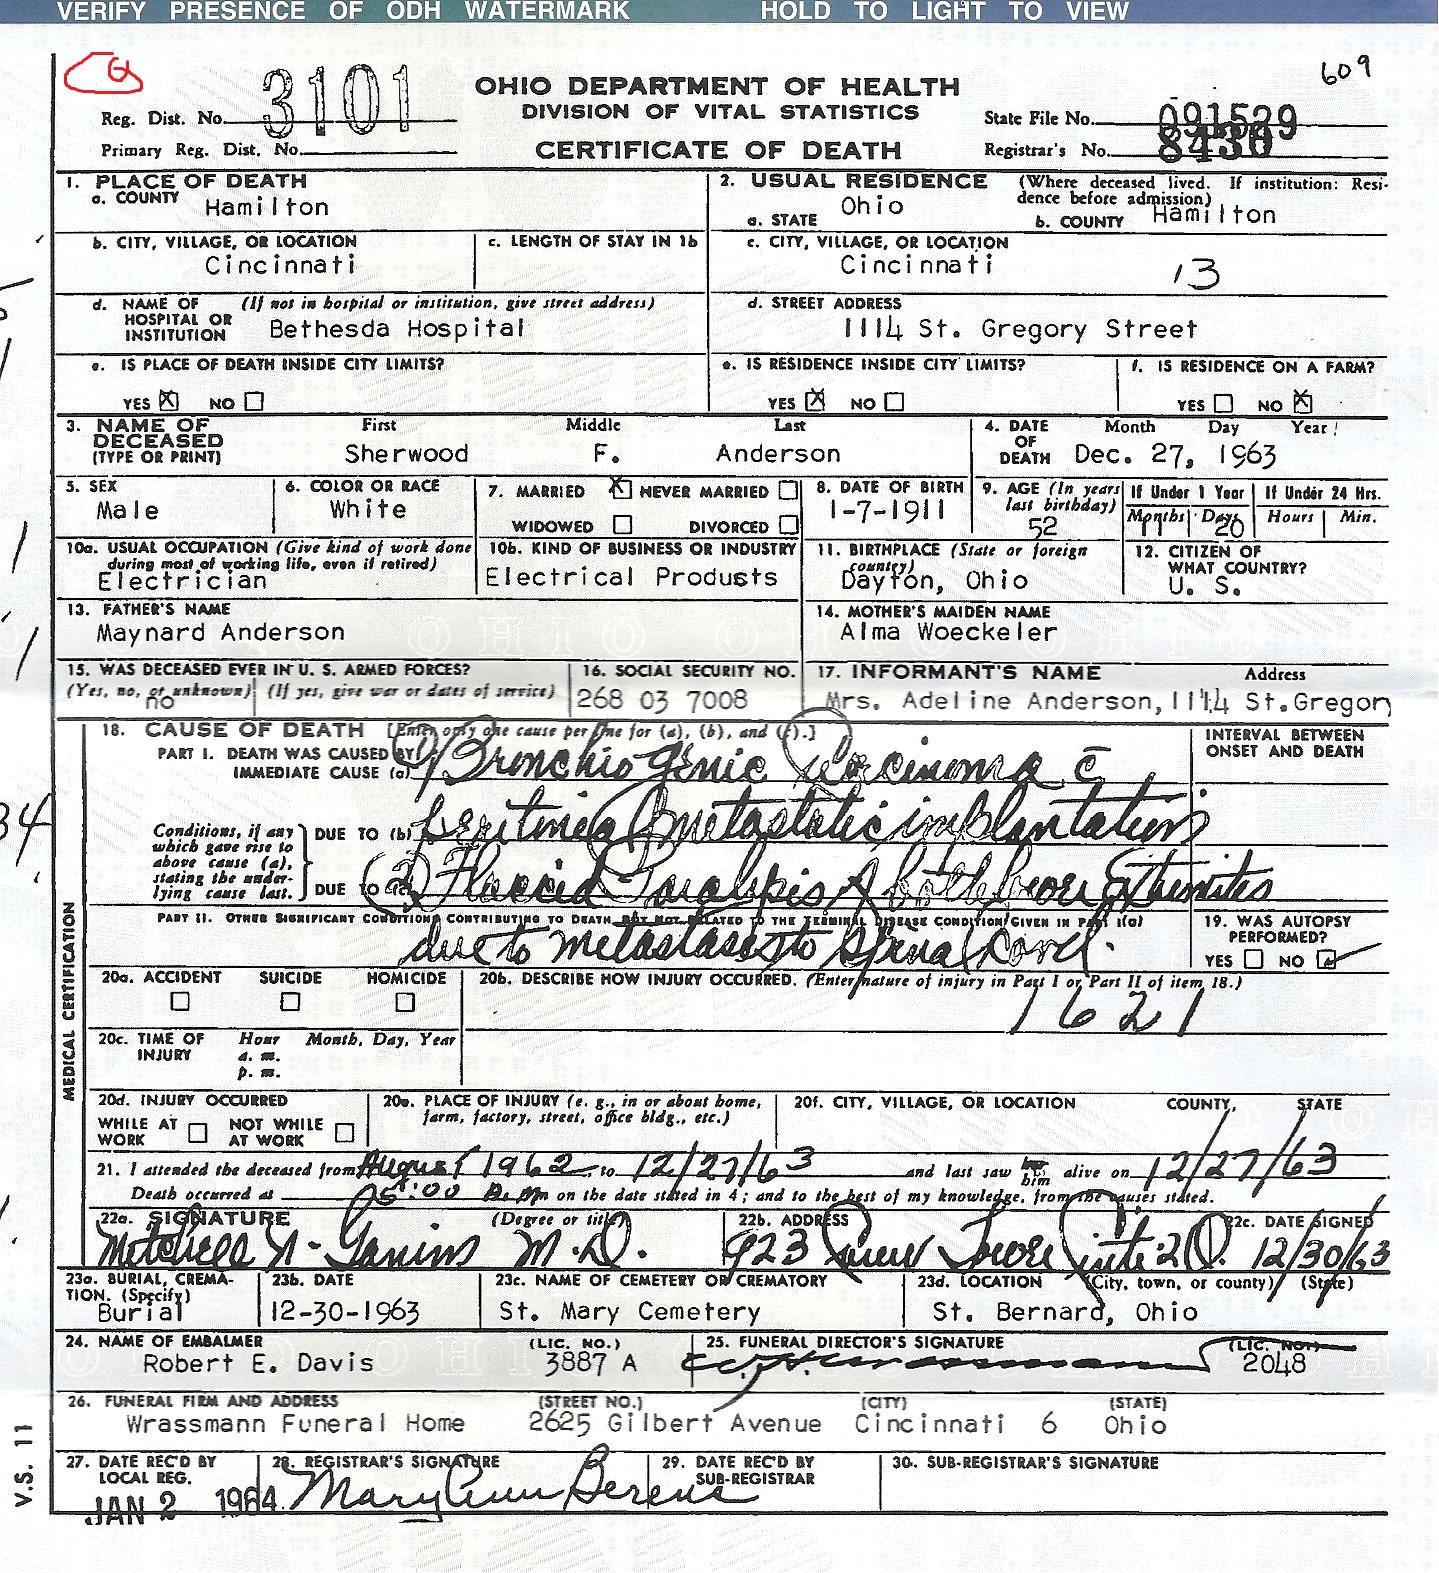 VERIFY PRESENCE OF ODH WATERMARK HOLD TO LIGHT TO VIEW
609
Reg. Dist. No. 3101
OHIO DEPARTMENT OF HEALTH
DIVISION OF VITAL STATISTICS
CERTIFICATE OF DEATH
State File No. 091529
Primary Reg. Dist. No.
Registrar's No. 8430
1. PLACE OF DEATH
a. COUNTY Hamilton
2. USUAL RESIDENCE (Where deceased lived. If institution: Residence before admission)
a. STATE Ohio b. COUNTY Hamilton
b. CITY, VILLAGE, OR LOCATION
Cincinnati
c. LENGTH OF STAY IN 1b
c. CITY, VILLAGE, OR LOCATION
Cincinnati 13
d. NAME OF HOSPITAL OR INSTITUTION (If not in hospital or institution, give street address)
Bethesda Hospital
d. STREET ADDRESS
1114 St. Gregory Street
e. IS PLACE OF DEATH INSIDE CITY LIMITS?
YES X NO
e. IS RESIDENCE INSIDE CITY LIMITS?
YES X NO
f. IS RESIDENCE ON A FARM?
YES NO X
3. NAME OF DECEASED (TYPE OR PRINT)
First Middle Last
Sherwood F. Anderson
4. DATE OF DEATH Month Day Year
Dec. 27, 1963
5. SEX
Male
6. COLOR OR RACE
White
7. MARRIED X NEVER MARRIED
WIDOWED DIVORCED
8. DATE OF BIRTH
1-7-1911
9. AGE (In years last birthday)
52
If Under 1 Year If Under 24 Hrs.
Months Days Hours Min.
11 20
10a. USUAL OCCUPATION (Give kind of work done during most of working life, even if retired)
Electrician
10b. KIND OF BUSINESS OR INDUSTRY
Electrical Products
11. BIRTHPLACE (State or foreign country)
Dayton, Ohio
12. CITIZEN OF WHAT COUNTRY?
U. S.
13. FATHER'S NAME
Maynard Anderson
14. MOTHER'S MAIDEN NAME
Alma Woeckeler
15. WAS DECEASED EVER IN U. S. ARMED FORCES?
(Yes, no, or unknown) (If yes, give war or dates of service)
no
16. SOCIAL SECURITY NO.
268 03 7008
17. INFORMANT'S NAME Address
Mrs. Adeline Anderson, 1114 St.Gregory
18. CAUSE OF DEATH [Enter only one cause per line for (a), (b), and (c).]
INTERVAL BETWEEN ONSET AND DEATH
PART I. DEATH WAS CAUSED BY:
IMMEDIATE CAUSE (a) (1) Bronchiogenic Carcinoma c̄
Conditions, if any which gave rise to above cause (a), stating the underlying cause last.
DUE TO (b) peritoneal metastatic implantations
DUE TO (c) (2) Flaccid Paralysis of both lower extremities
PART II. OTHER SIGNIFICANT CONDITIONS CONTRIBUTING TO DEATH BUT NOT RELATED TO THE TERMINAL DISEASE CONDITION GIVEN IN PART I(a)
due to metastases to spinal cord.
19. WAS AUTOPSY PERFORMED?
YES NO
20a. ACCIDENT SUICIDE HOMICIDE
20b. DESCRIBE HOW INJURY OCCURRED. (Enter nature of injury in Part I or Part II of item 18.)
1621
20c. TIME OF INJURY Hour Month, Day, Year
a. m.
p. m.
20d. INJURY OCCURRED
WHILE AT WORK NOT WHILE AT WORK
20e. PLACE OF INJURY (e. g., in or about home, farm, factory, street, office bldg., etc.)
20f. CITY, VILLAGE, OR LOCATION COUNTY, STATE
21. I attended the deceased from August 1962, to 12/27/63 and last saw him alive on 12/27/63
Death occurred at 5:00 A.m on the date stated in 4; and to the best of my knowledge, from the causes stated.
22a. SIGNATURE (Degree or title)
Mitchell N. Ganim M.D.
22b. ADDRESS
923 Carew Tower Suite 20.
22c. DATE SIGNED
12/30/63
23a. BURIAL, CREMATION. (Specify)
Burial
23b. DATE
12-30-1963
23c. NAME OF CEMETERY OR CREMATORY
St. Mary Cemetery
23d. LOCATION (City, town, or county) (State)
St. Bernard, Ohio
24. NAME OF EMBALMER (LIC. NO.)
Robert E. Davis 3887 A
25. FUNERAL DIRECTOR'S SIGNATURE (LIC. NO.)
2048
26. FUNERAL FIRM AND ADDRESS (STREET NO.) (CITY) (STATE)
Wrassmann Funeral Home 2625 Gilbert Avenue Cincinnati 6 Ohio
27. DATE REC'D BY LOCAL REG.
JAN 2 1964
28. REGISTRAR'S SIGNATURE
Mary Ann Berens
29. DATE REC'D BY SUB-REGISTRAR
30. SUB-REGISTRAR'S SIGNATURE
MEDICAL CERTIFICATION
V.S. 11